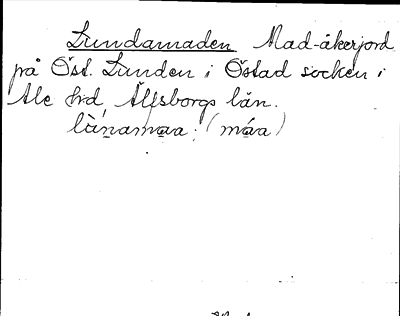 Lundamaden Mad-åkerjord
på Öst. Lunden i Östad socken i
Ale hrd, Älfsborgs län.
lànamaa: (máa)